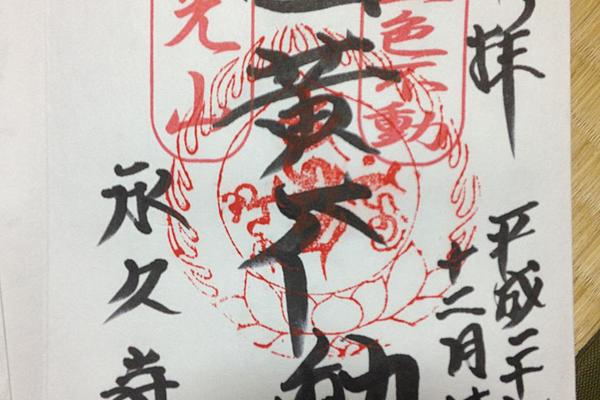 拝
平成二十
十二月
色不動
黄不動
光山
永久寺